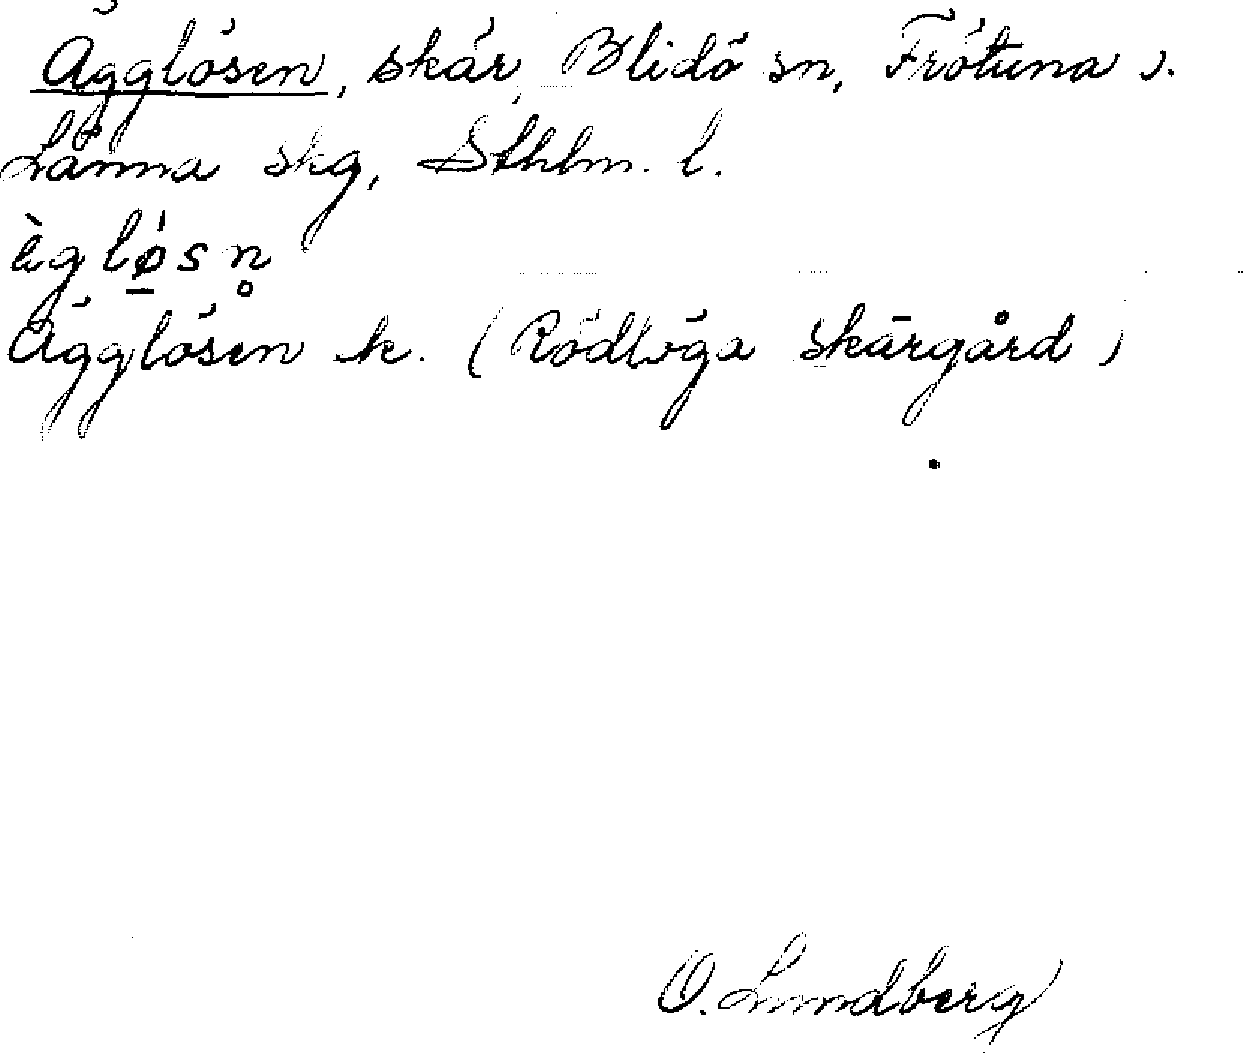 Ägglösen, skär, Blidö sn, Frötuna o.
Länna skg, Sthlm. l.
ègløsn̥
Ägglösen k. (Rödlöga skärgård)
O. Lundberg